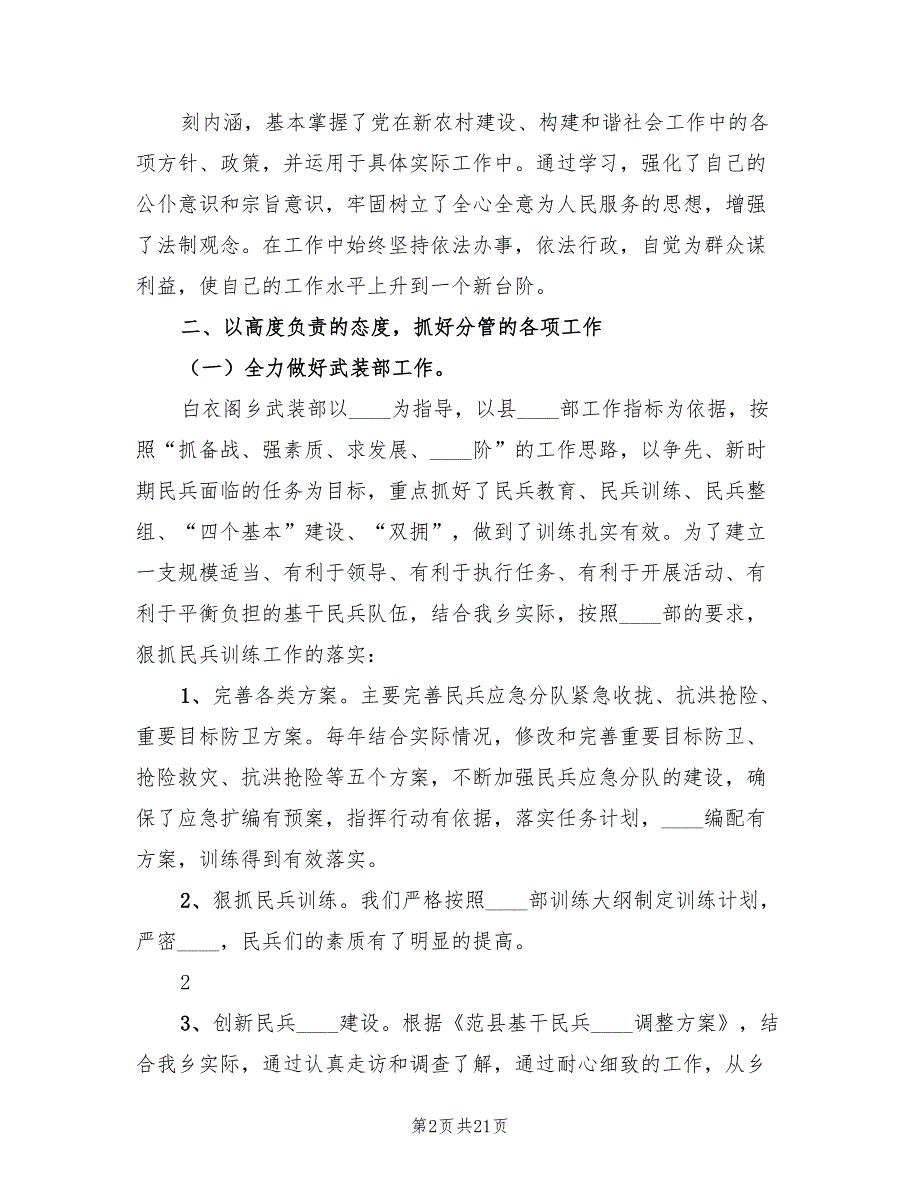 刻内涵，基本掌握了党在新农村建设、构建和谐社会工作中的各
项方针、政策，并运用于具体实际工作中。通过学习，强化了自己的
公仆意识和宗旨意识，牢固树立了全心全意为人民服务的思想，增强
了法制观念。在工作中始终坚持依法办事，依法行政，自觉为群众谋
利益，使自己的工作水平上升到一个新台阶。
二、以高度负责的态度，抓好分管的各项工作
（一）全力做好武装部工作。
白衣阁乡武装部以____为指导，以县____部工作指标为依据，按
照“抓备战、强素质、求发展、____阶”的工作思路，以争先、新时
期民兵面临的任务为目标，重点抓好了民兵教育、民兵训练、民兵整
组、“四个基本”建设、“双拥”，做到了训练扎实有效。为了建立
一支规模适当、有利于领导、有利于执行任务、有利于开展活动、有
利于平衡负担的基干民兵队伍，结合我乡实际，按照____部的要求，
狠抓民兵训练工作的落实：
1、完善各类方案。主要完善民兵应急分队紧急收拢、抗洪抢险、
重要目标防卫方案。每年结合实际情况，修改和完善重要目标防卫、
抢险救灾、抗洪抢险等五个方案，不断加强民兵应急分队的建设，确
保了应急扩编有预案，指挥行动有依据，落实任务计划，____编配有
方案，训练得到有效落实。
2、狠抓民兵训练。我们严格按照____部训练大纲制定训练计划，
严密____，民兵们的素质有了明显的提高。
2
3、创新民兵____建设。根据《范县基干民兵____调整方案》，结
合我乡实际，通过认真走访和调查了解，通过耐心细致的工作，从乡
第2页共21页